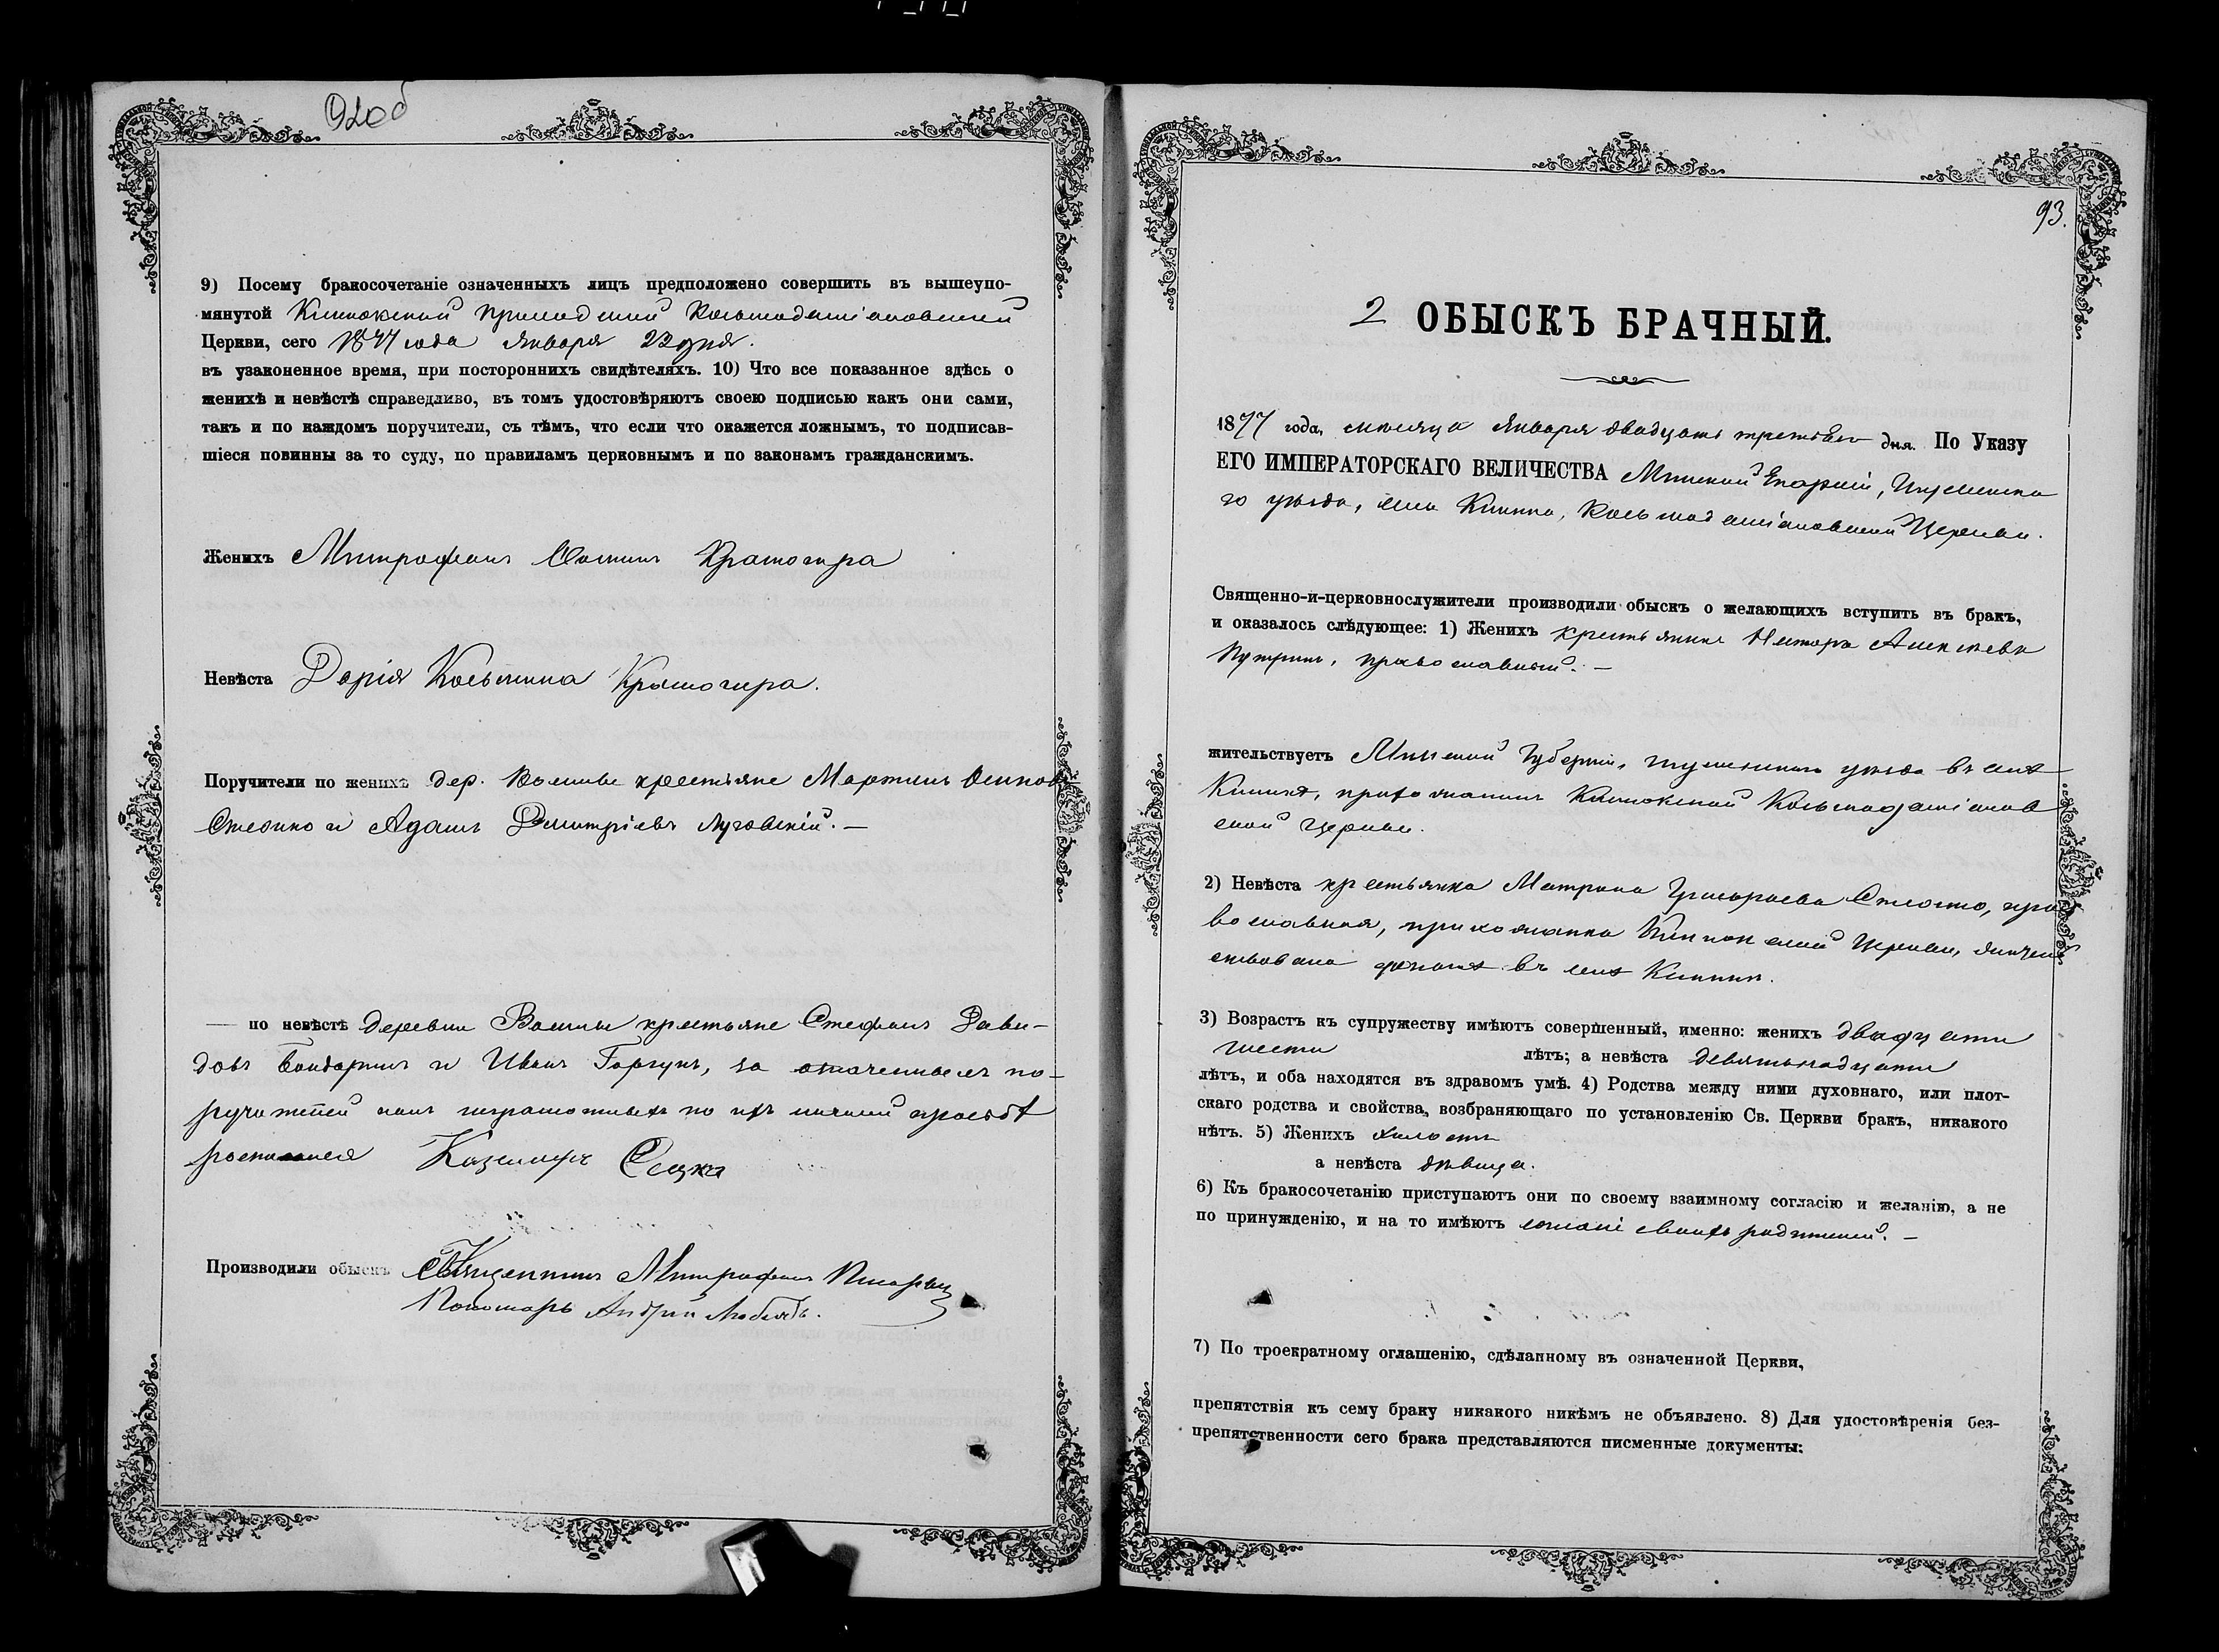 92об
9) Посему бракосочетаніе означенныхъ лицъ предположено совершить въ вышеупо-
мянутой
Церкви, сего 1877 года Января 23 дня.
въ узаконенное время, при постороннихъ свидѣтеляхъ. 10) Что все показанное здѣсь о
женихѣ и невѣстѣ справедливо, въ томъ удостовѣряютъ своею подписью какъ они сами,
такъ и по каждомъ поручители, съ тѣмъ, что если что окажется ложнымъ, то подписав-
шіеся повинны за то суду, по правиламъ церковнымъ и по законамъ гражданскимъ.
Женихъ Митрофанъ
Невѣста Дарія Косьмина
Поручители по женихѣ дер. крестьяне Мартинъ Осиповъ
и Адамъ Димитріевъ Луговскій. —
— по невѣстѣ деревни крестьяне Стефанъ Дави-
довъ Бондарикъ и Иванъ Горгунъ, за по-
ручителей неграмотныхъ по ихъ личной просьбѣ
росписался Казимиръ
Производили обыскъ Священникъ Митрофанъ
Пономарь Андрей
93.
2 ОБЫСКЪ БРАЧНЫЙ.
1877 года, мѣсяца Января двадцать третьяго дня. По Указу
ЕГО ИМПЕРАТОРСКАГО ВЕЛИЧЕСТВА Минской Епархіи, Игуменска
го уѣзда, села Церкви.
Священно-и-церковнослужители производили обыскъ о желающихъ вступить въ бракъ,
и оказалось слѣдующее: 1) Женихъ крестьянинъ Несторъ Алексѣевъ
православный. —
жительствуетъ Минской Губерніи, Игуменскаго уѣзда въ селѣ
прихожанинъ
ской Церкви.
2) Невѣста крестьянка Матрона Григорьева пра
вославная, прихожанка Церкви,
въ селѣ
3) Возрастъ къ супружеству имѣютъ совершенный, именно: женихъ двадцати
шести лѣтъ; а невѣста девятьнадцати
лѣтъ, и оба находятся въ здравомъ умѣ. 4) Родства между ними духовнаго, или плот-
скаго родства и свойства, возбраняющаго по установленію Св. Церкви бракъ, никакого
нѣтъ. 5) Женихъ холостъ
а невѣста дѣвица.
6) Къ бракосочетанію приступаютъ они по своему взаимному согласію и желанію, а не
по принужденію, и на то имѣютъ согласіе своихъ родителей. —
7) По троекратному оглашенію, сдѣланному въ означенной Церкви,
препятствія къ сему браку никакого никѣмъ не объявлено. 8) Для удостовѣренія без-
препятственности сего брака представляются писменные документы: